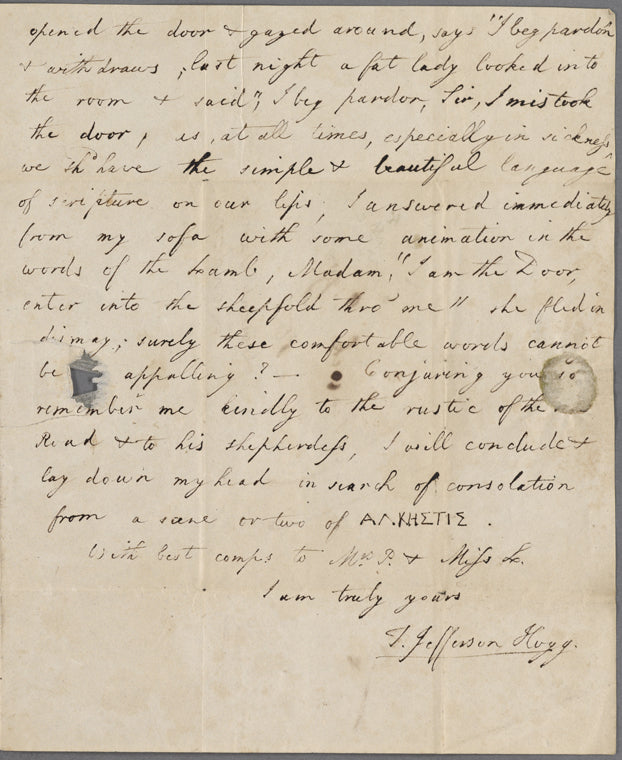 opened the door & gazed around, says "I beg pardon
& withdraws; last night a fat lady looked into
the room & said", I beg pardon, Sir, I mistook
the door, as, at all times, especially in sickness,
we shd have the simple & beautiful language
of scripture on our lips, I answered immediately
from my sofa with some animation in the
words of the Lamb, Madam, "I am the Door,
enter into the sheepfold thro' me" she fled in
dismay; surely these comfortable words cannot
be appalling? — Conjuring you so
remember me kindly to the rustic of the
Read & to his shepherdess, I will conclude &
lay down my head in search of consolation
from a scene or two of ΑΛΚΗΣΤΙΣ.
With best comps to Mrs P. & Miss L.
I am truly yours
T. Jefferson Hogg.